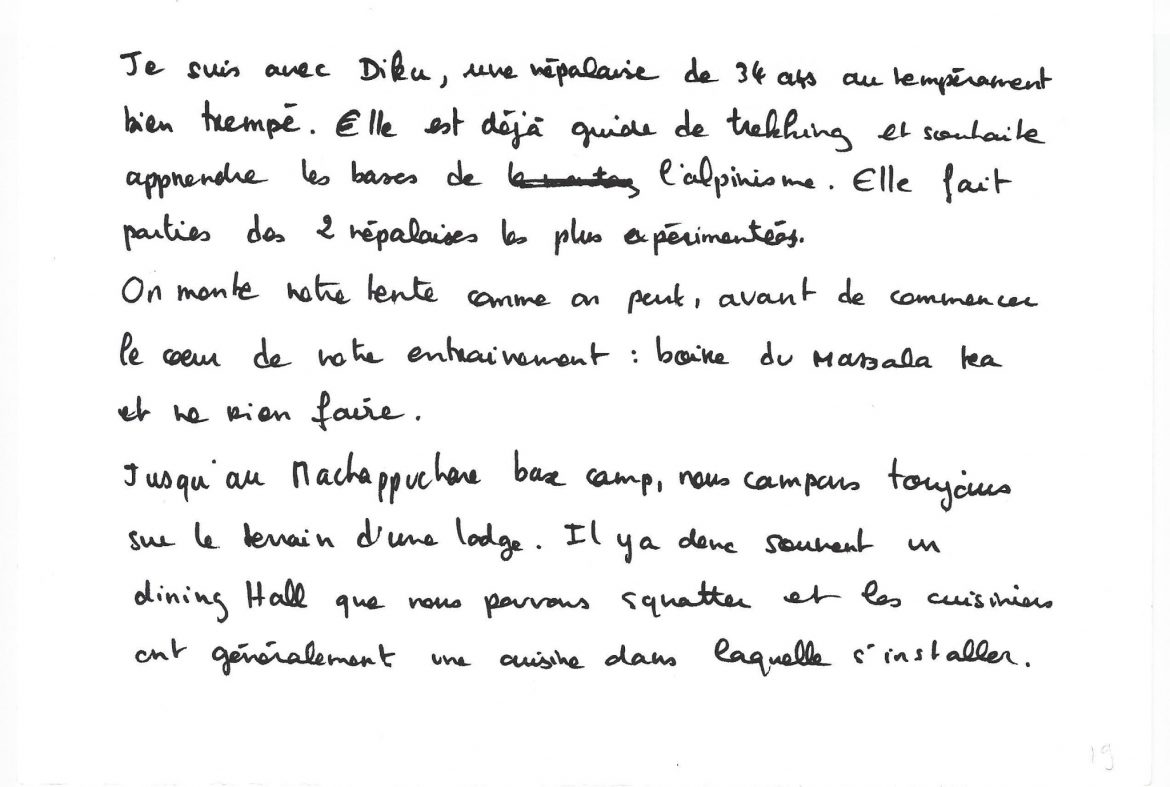 Je suis avec Diku, une népalaise de 34 ans au tempérament
bien trempé. Elle est déjà guide de trekking et souhaite
apprendre les bases de l'alpinisme. Elle fait
parties des 2 népalaises les plus expérimentées.
On monte notre tente comme on peut, avant de commencer
le coeur de notre entrainement : boire du Massala tea
et ne rien faire.
Jusqu'au Machappuchare base camp, nous campons toujours
sur le terrain d'une lodge. Il y a donc souvent un
dining Hall que nous pouvons squatter et les cuisiniers
ont généralement une cuisine dans laquelle s'installer.
19